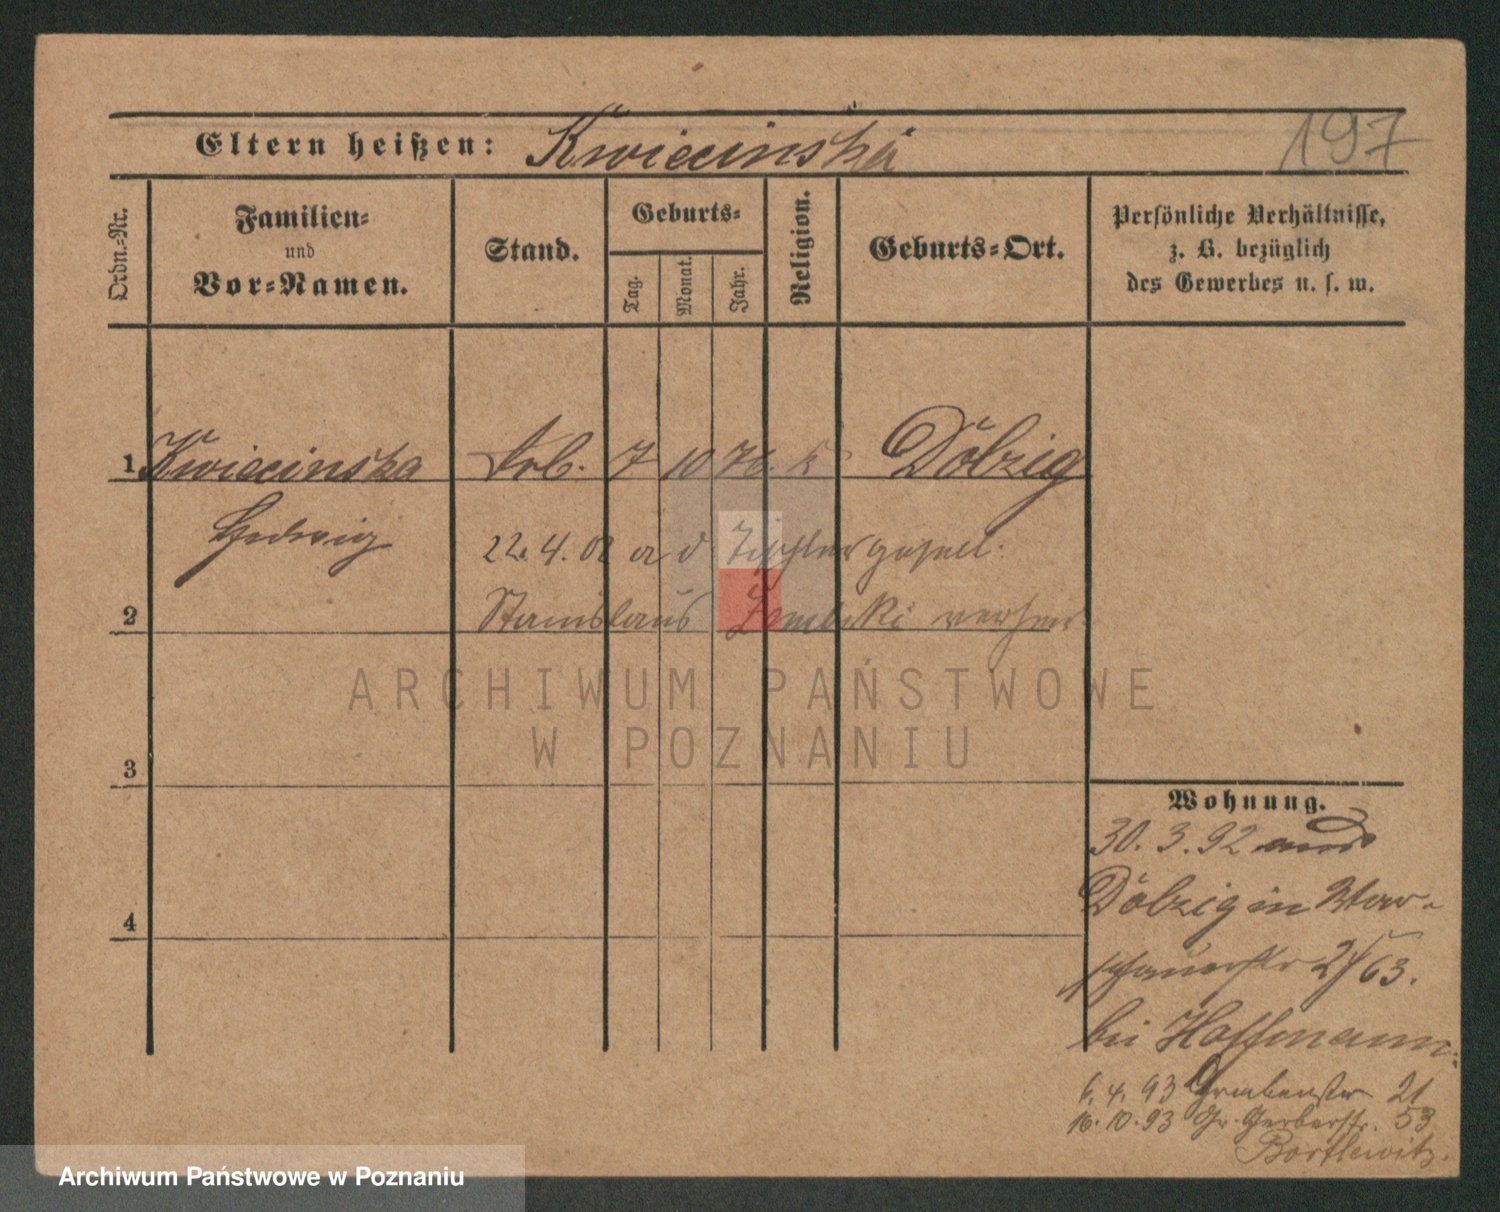 197
Eltern heißen: Kwiecinska
Ordn.-Nr.
Familien-
und
Vor-Namen.
Stand.
Geburts-
Tag.
Monat.
Jahr.
Religion.
Geburts-Ort.
Persönliche Verhältnisse,
z. B. bezüglich
des Gewerbes u. s. w.
1 Kwiecinska Arb. 7 10 76. k Dölzig
Hedwig
22. 4. 02 a d Tischlergesell.
2 Stanislaus verheir
ARCHIWUM PAŃSTWOWE
W POZNANIU
3
Wohnung.
30. 3. 92 aus
Dölzig in War-
4
schauerstr 2/63.
bei Hoffmann.
6. 4. 93 Grabenstr 21
16. 10. 93 Gr. Gerberstr. 53
Bortlewitz.
Archiwum Państwowe w Poznaniu